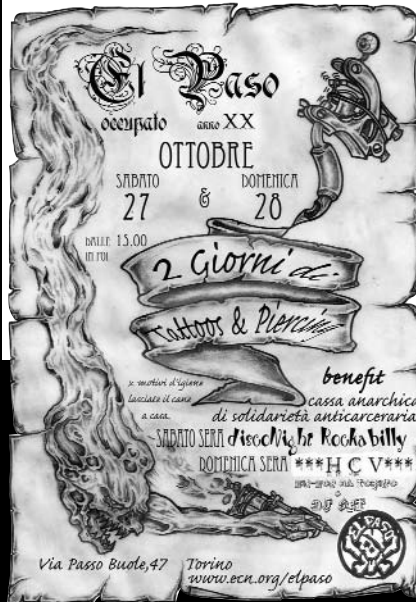 El Paso
occupato anno XX
OTTOBRE
SABATO & DOMENICA
27 28
DALLE 15.00
IN POI
2 Giorni di
Tattoos & Piercing
x motivi d'igiene
lasciate il cane
a casa.
benefit
cassa anarchica
di solidarietà anticarceraria
SABATO SERA discoNight Rockabilly
DOMENICA SERA ***H C V***
EL PASO
Via Passo Buole,47 Torino
www.ecn.org/elpaso